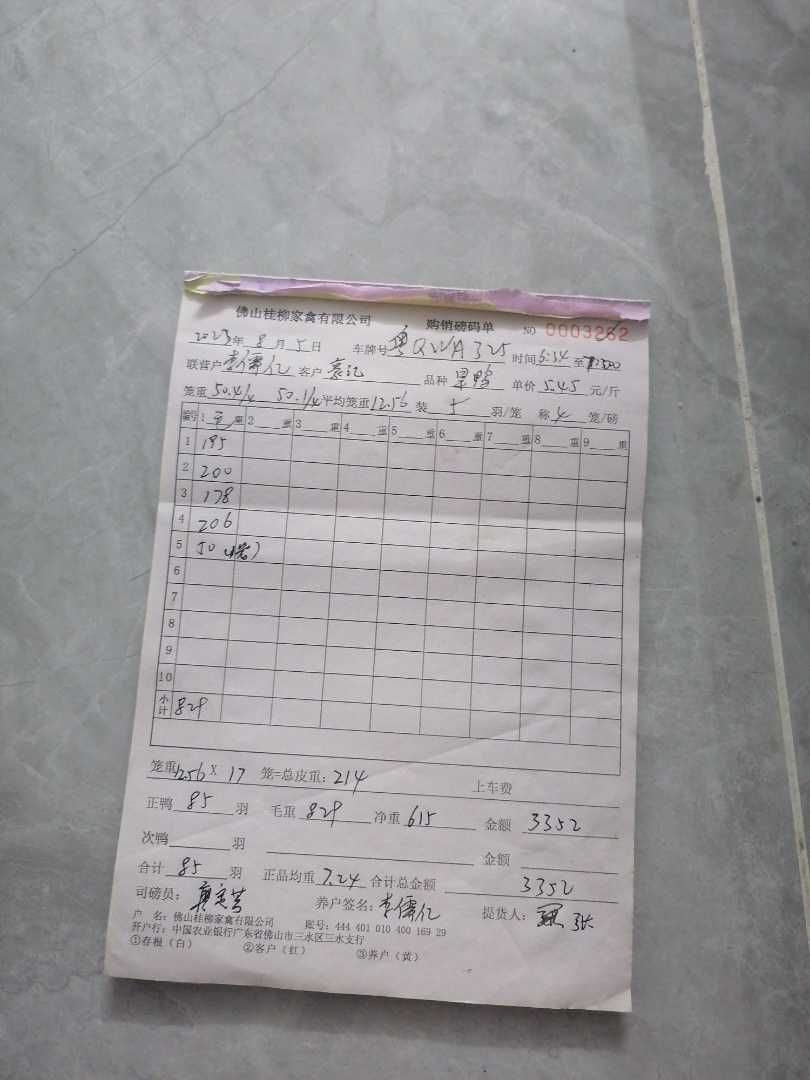 佛山桂柳家禽有限公司 购销磅码单 NO 0003262
2023年8月5日 车牌号粤QWA325 时间6:34至
联营户李儒亿 客户袁记 品种 单价5.45元/斤
笼重50.4/4 50.1/4平均笼重12.56装5羽/笼 称4笼/磅
编号 1毛重 2重 3重 4重 5重 6重 7重 8重 9重
1 195
2 200
3 178
4 206
5 50
6
7
8
9
10
小计 829
笼重12.56X17笼=总皮重:214 上车费
正鸭85羽 毛重829 净重615 金额3352
次鸭羽 金额
合计85羽 正品均重7.24 合计总金额3352
司磅员: 养户签名:李儒亿 提货人:
户 名:佛山桂柳家禽有限公司 账号:444 401 010 400 169 29
开户行:中国农业银行广东省佛山市三水区三水支行
①存根(白) ②客户(红) ③养户(黄)